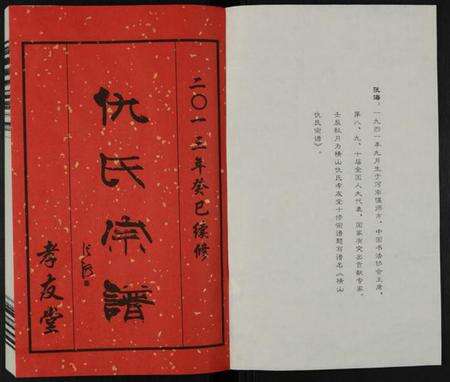 二〇一三年癸巳续修
仇氏宗譜
张海
孝友堂
张海，一九四一年九月生于河南偃师市，中国书法协会主席，
第八、九、十届全国人大代表，国家有突出贡献专家，
壬辰秋月为横山仇氏孝友堂十修宗谱题写谱名《横山
仇氏宗谱》。